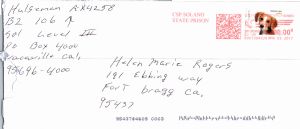 Hulseman AX4258
B2 106 ↑
Sol Level III
PO Box 4000
Vacaville Cal,
95696-4000
CSP SOLANO
STATE PRISON
Helen Marie Rogers
191 Ebbing way
Fort bragg Ca,
95437